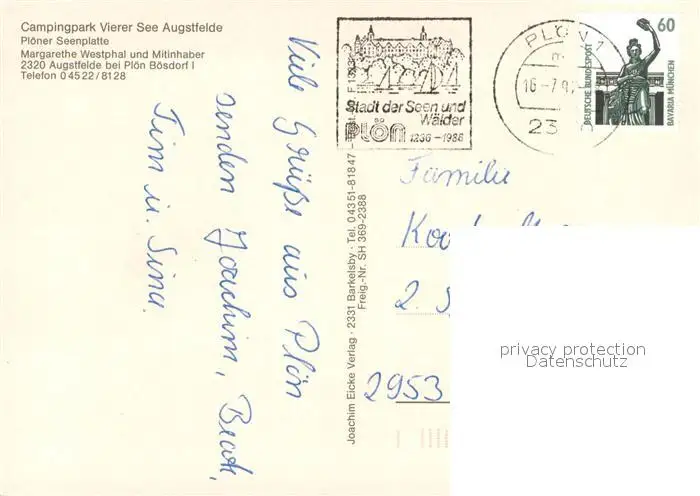 Campingpark Vierer See Augstfelde
Plöner Seenplatte
Margarethe Westphal und Mitinhaber
2320 Augstfelde bei Plön Bösdorf I
Telefon 0 45 22 / 81 28
Viele Grüße aus Plön
senden Joachim, Beate,
Tim u. Sina.
Joachim Eicke Verlag · 2331 Barkelsby · Tel. 0 43 51-8 18 47
Freig.-Nr. SH 369-2388
Stadt der Seen und
Wälder
PLÖN 1236 – 1986
PLÖN 1
m
16.-7.9
23
60
DEUTSCHE BUNDESPOST
BAVARIA MÜNCHEN
Familie
2.
2953
privacy protection
Datenschutz